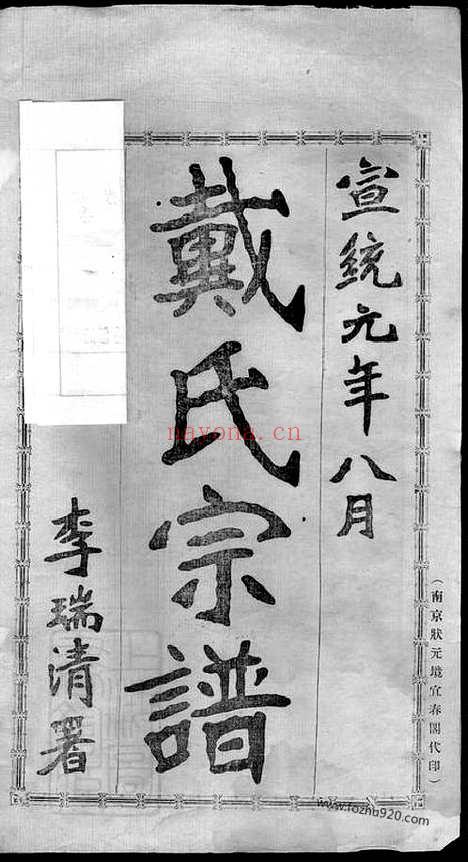 宣統元年八月
戴氏宗譜
李瑞清署
（南京狀元境宜春閣代印）
nayona.cn
www.fozhu920.com